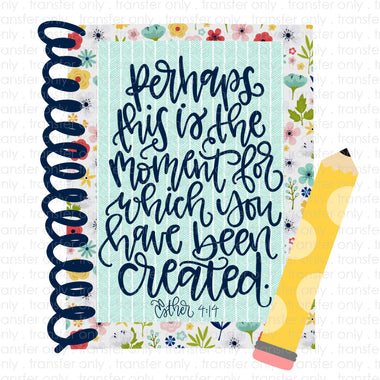 perhaps
this is the
moment for
which you
have been
created.
Esther 4:14
transfer only . transfer only . transfer only